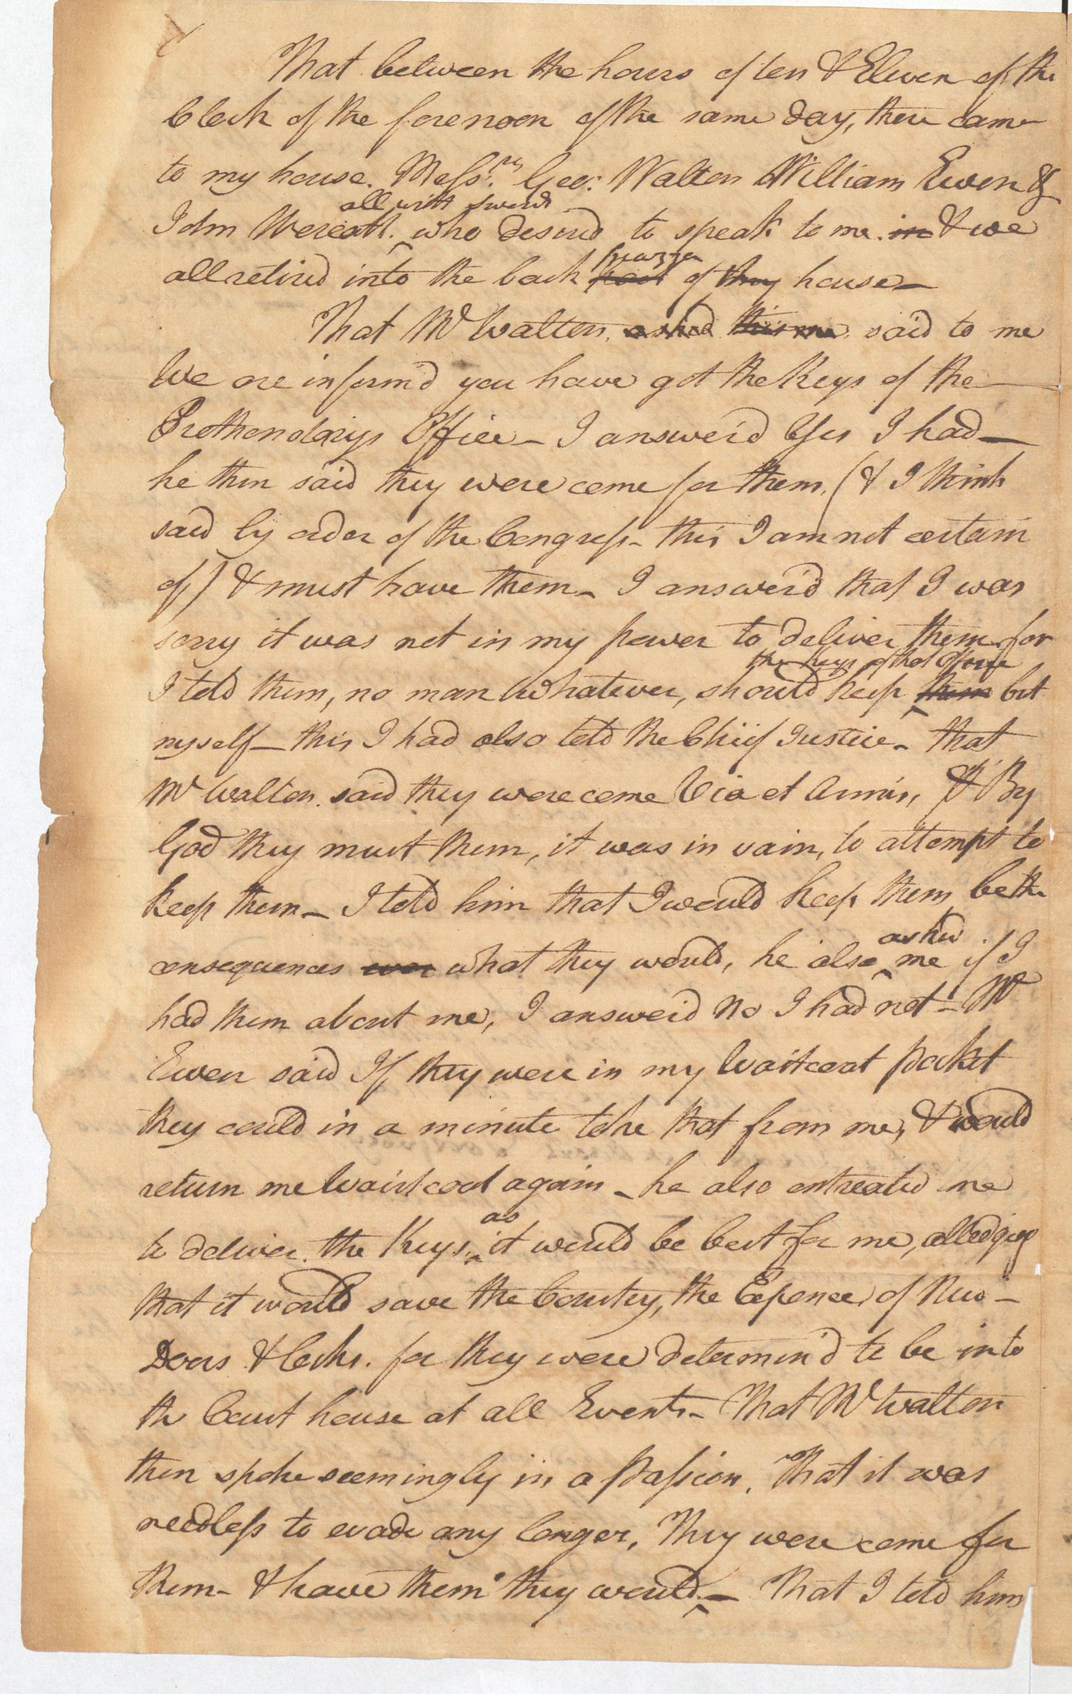 That between the hours of ten & Eleven of the
Clock of the forenoon of the same day, there came
to my house. Messrs. Geo: Walton William Ewen &
all with swords
John Wereatt. who desired to speak to me in & we
piazza
all retired into the back of my house—
That Mr Walton. asked this me said to me
We are inform'd you have got the Keys of the—
Prothonotarys Office— I answer'd Yes I had—
he then said they were come for them. (& I think
said by order of the Congress— this I am not certain
of) & must have them— I answer'd that I was
sorry it was not in my power to deliver them for
the keys of that Office
I told them, no man whatever, should keep them but
myself— this I had also told the Chief Justice— that
Mr Walton. said they were come Via et Armis, & By
God they must them, it was in vain, to attempt to
keep them— I told him that I would keep them be the
asked
consequences what they would, he also me if I
had them about me, I answer'd No I had not— Mr
Ewen said If they were in my Waistcoat pocket
they could in a minute take that from me, & would
return me Waistcoat again— he also entreated me
as
to deliver the Keys, it would be best for me, alledging
that it would save the Country, the Expence of New—
Doors & Locks. for they were determin'd to be into
the Court house at all Events— That Mr Walton
then spoke seemingly in a passion. That it was
needless to evade any longer, They were come for
them— & have them they would.— That I told him